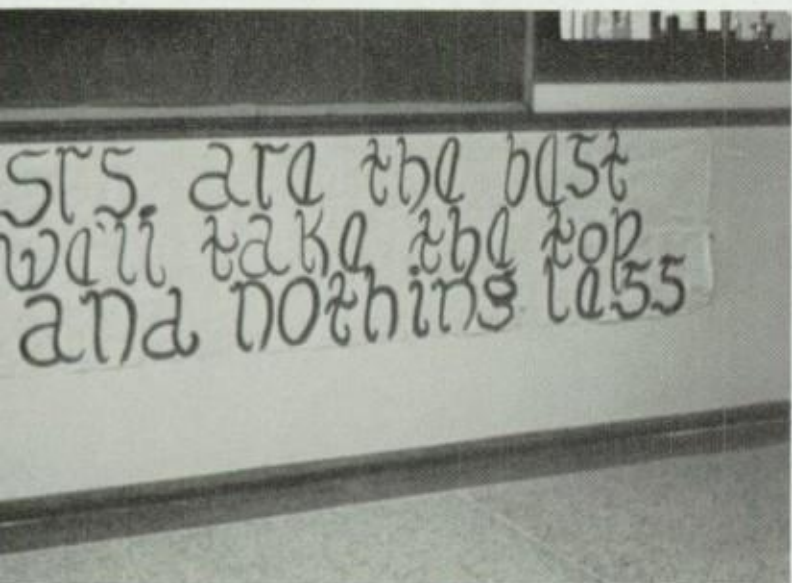 srs. are the best
we'll take the top
and nothing less